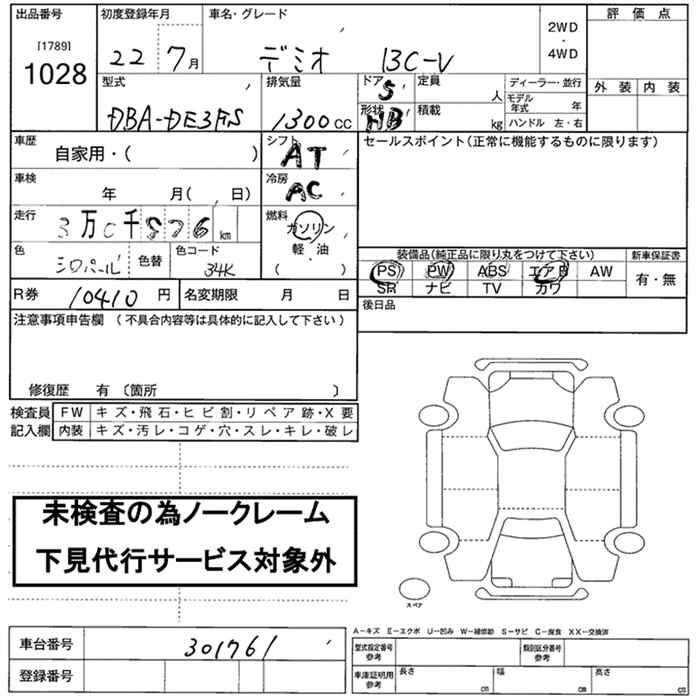 出品番号 初度登録年月 車名・グレード 評価点
[1789]
1028
22 7月 デミオ 13C-V
2WD
・
4WD
型式 排気量 ドア 定員 ディーラー・並行 外装 内装
5 人 モデル年式 年
DBA-DE3FS 1300cc 形状 HB 積載 kg ハンドル 左・右
車歴 シフト セールスポイント(正常に機能するものに限ります)
自家用・( ) AT
車検 冷房
年 月( 、 日) AC
走行 燃料
3万0千576km ガソリン
色 色替 色コード 軽・油
シロパール 34K ( )
装備品(純正品に限り丸をつけて下さい) 新車保証書
PS PW ABS エアB AW 有・無
SR ナビ TV カワ
R券 10410円 名変期限 月 日 後日品
注意事項申告欄 (不具合内容等は具体的に記入して下さい)
修復歴 有 〔箇所 〕
検査員 FW キズ・飛石・ヒビ割・リペア跡・X要
記入欄 内装 キズ・汚レ・コゲ・穴・スレ・キレ・破レ
未検査の為ノークレーム
下見代行サービス対象外
スペア
A-キズ E-エクボ U-凹み W-補修跡 S-サビ C-腐食 XX-交換済
車台番号 301761
型式指定番号 参考 類別区分番号 参考
登録番号
車庫証明用 参考 長さ cm 幅 cm 高さ cm